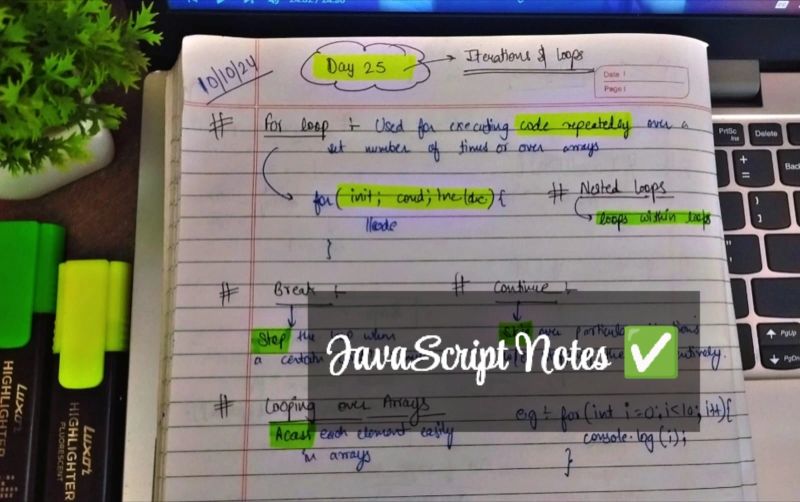 10/10/24
Day 25 → Iterations & loops
Date :
Page :
# For loop :- Used for executing code repeatedly over a
set number of times or over arrays
for (init; cond; Inc/dec) {
//code
}
# Nested loops
→ loops within loops
# Break :-
Stop the loop when
a certain
# Continue :-
over particular
# Looping over Arrays
Access each element easily
in arrays
eg :- for (int i=0; i<10; i++) {
console.log(i);
}
JavaScript Notes ✅
PrtSc
Ins
Delete
Back
PgUp
PgDn
Luxor
HIGHLIGHTER
Luxor
HIGHLIGHTER
FLUORESCENT